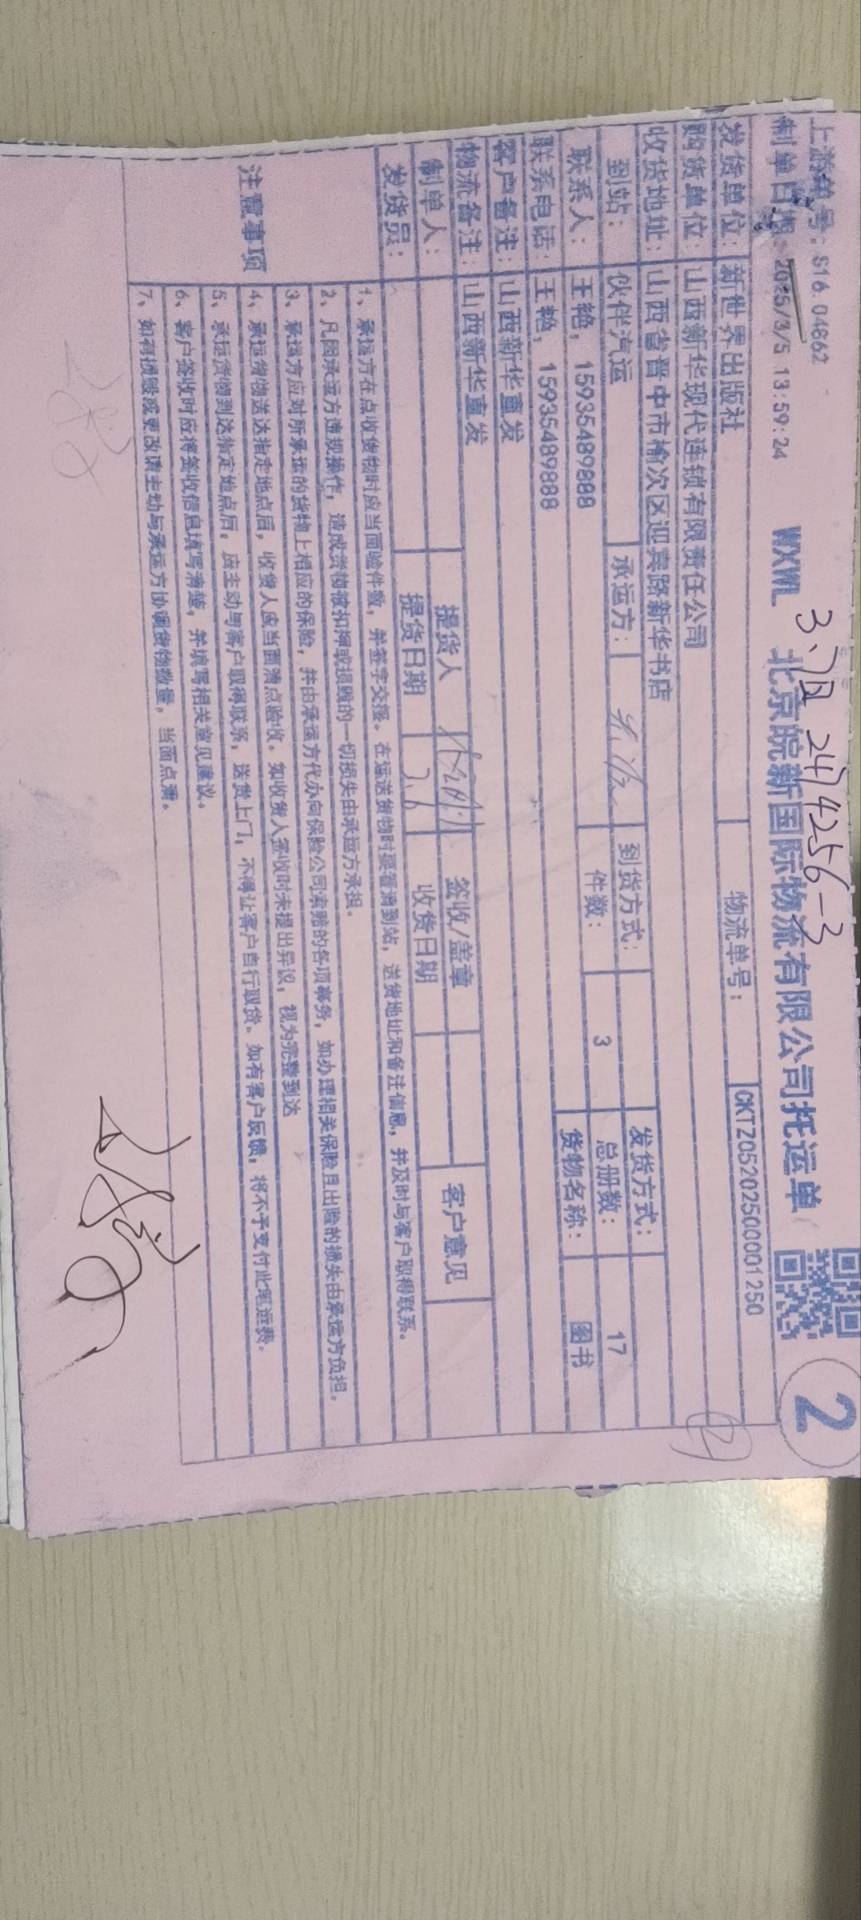 上游单号：S16.04862
3.7日 2474256-3
制单日期：2025/3/5 13:59:24 WXWL 北京皖新国际物流有限公司托运单 2
发货单位：新世界出版社 物流单号：CKTZ05202500001250
购货单位：山西新华现代连锁有限责任公司
收货地址：山西省晋中市榆次区迎宾路新华书店
到站：伙伴汽运 承运方： 到货方式： 发货方式：
联系人：王艳，15935489888 件数：3 总册数：17
联系电话：王艳，15935489888 货物名称：图书
客户备注：山西新华直发
物流备注：山西新华直发
制单人： 提货人 签收/盖章 客户意见
发货员： 提货日期 3.6 收货日期
注意事项
1、承运方在点收货物时应当面验件数，并签字交接。在运送货物时要看清到站，送货地址和备注信息，并及时与客户取得联系。
2、凡因承运方违规操作，造成货物被扣押或损毁的一切损失由承运方承担。
3、承运方应对所承运的货物上相应的保险，并由承运方代办向保险公司索赔的各项事务，如办理相关保险且出险的损失由承运方负担。
4、承运货物送达指定地点后，收货人应当面清点验收。如收货人签收时未提出异议，视为完整到达
5、承运货物到达指定地点后，应主动与客户取得联系，送货上门，不得让客户自行取货。如有客户反馈，将不予支付此笔运费。
6、客户签收时应将签收信息填写清楚，并填写相关意见建议。
7、如有损毁或更改请主动与承运方协调货物数量，当面点清。